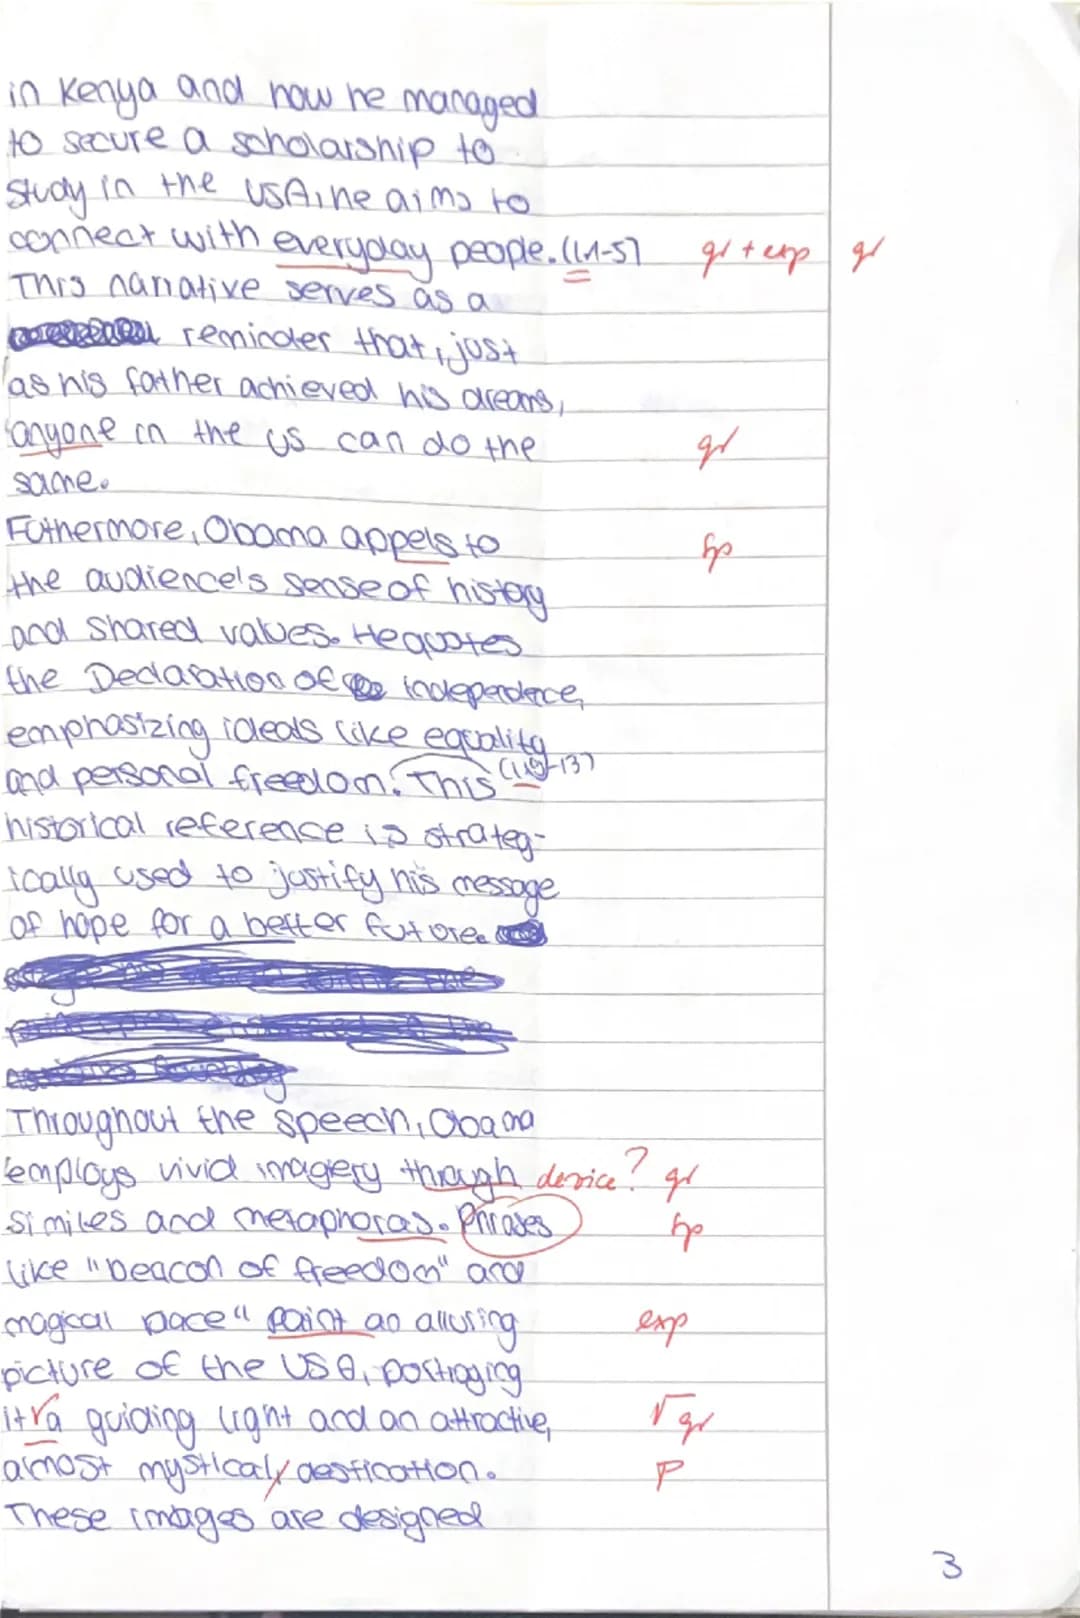 in Kenya and how he managed
to secure a scholarship to
study in the USA, he aims to
connect with everyday people. (l.1-5) gr + exp gr
This narrative serves as a
reminder that, just
as his father achieved his dreams,
anyone in the US can do the gr
same.
Futhermore, Obama appels to sp
the audience's sense of history
and shared values. He quotes
the Declaration of independence,
emphasizing ideals like equality
and personal freedom. This (l.9-13)
historical reference is strateg-
ically used to justify his message
of hope for a better future.
Throughout the speech, Obama
employs vivid imagery through device? gr
similes and metaphoras. Phrases sp
like "beacon of freedom" and
magical place" paint an alluring exp
picture of the USA, portraging
it √ a guiding light and an attractive, √ gr
almost mystical, destination. P
These images are designed
3